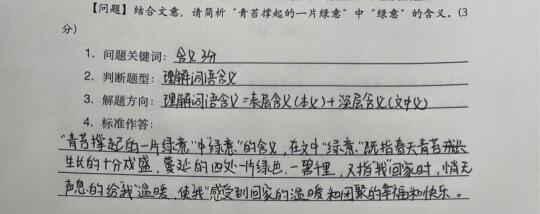 【问题】结合文意，请简析“青苔撑起的一片绿意”中“绿意”的含义。(3
分)
1. 问题关键词：含义 3分
2. 判断题型：理解词语含义
3. 解题方向：理解词语含义=表层含义(本义)+深层含义(文中义)
4. 标准作答：
"青苔撑起的一片绿意"中"绿意"的含义，在文中"绿意"既指春天青苔
生长的十分茂盛，蔓延的四处一片绿色.一望千里，又指"我"回家时，悄无
声息.的给"我"温暖，使"我"感受到回家的温暖和团聚的幸福和快乐。